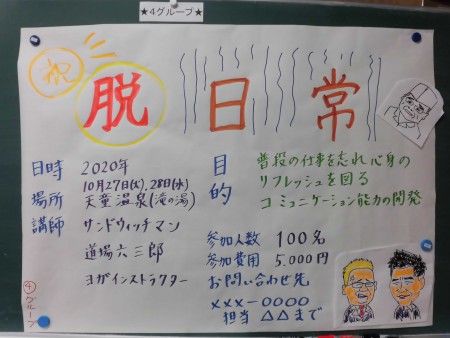 ★4グループ★
祝
脱日常
日時 2020年
10月27日(火).28日(水)
場所 天童温泉(滝の湯)
講師 サンドウィッチマン
道場六三郎
ヨガインストラクター
目的 普段の仕事を忘れ心身の
リフレッシュを図る
コミュニケーション能力の開発
参加人数 100名
参加費用 5,000円
お問い合わせ先
×××-0000
担当 △△まで
④グループ